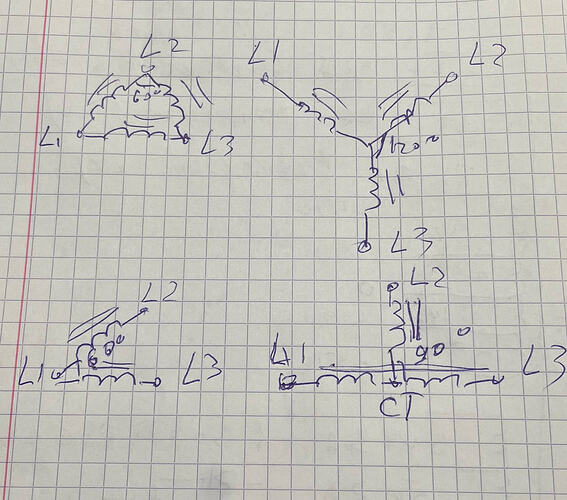 L2
60°
L1
L3
L1
L2
120°
L3
L2
60°
L1
L3
L2
90°
L1
L3
CT